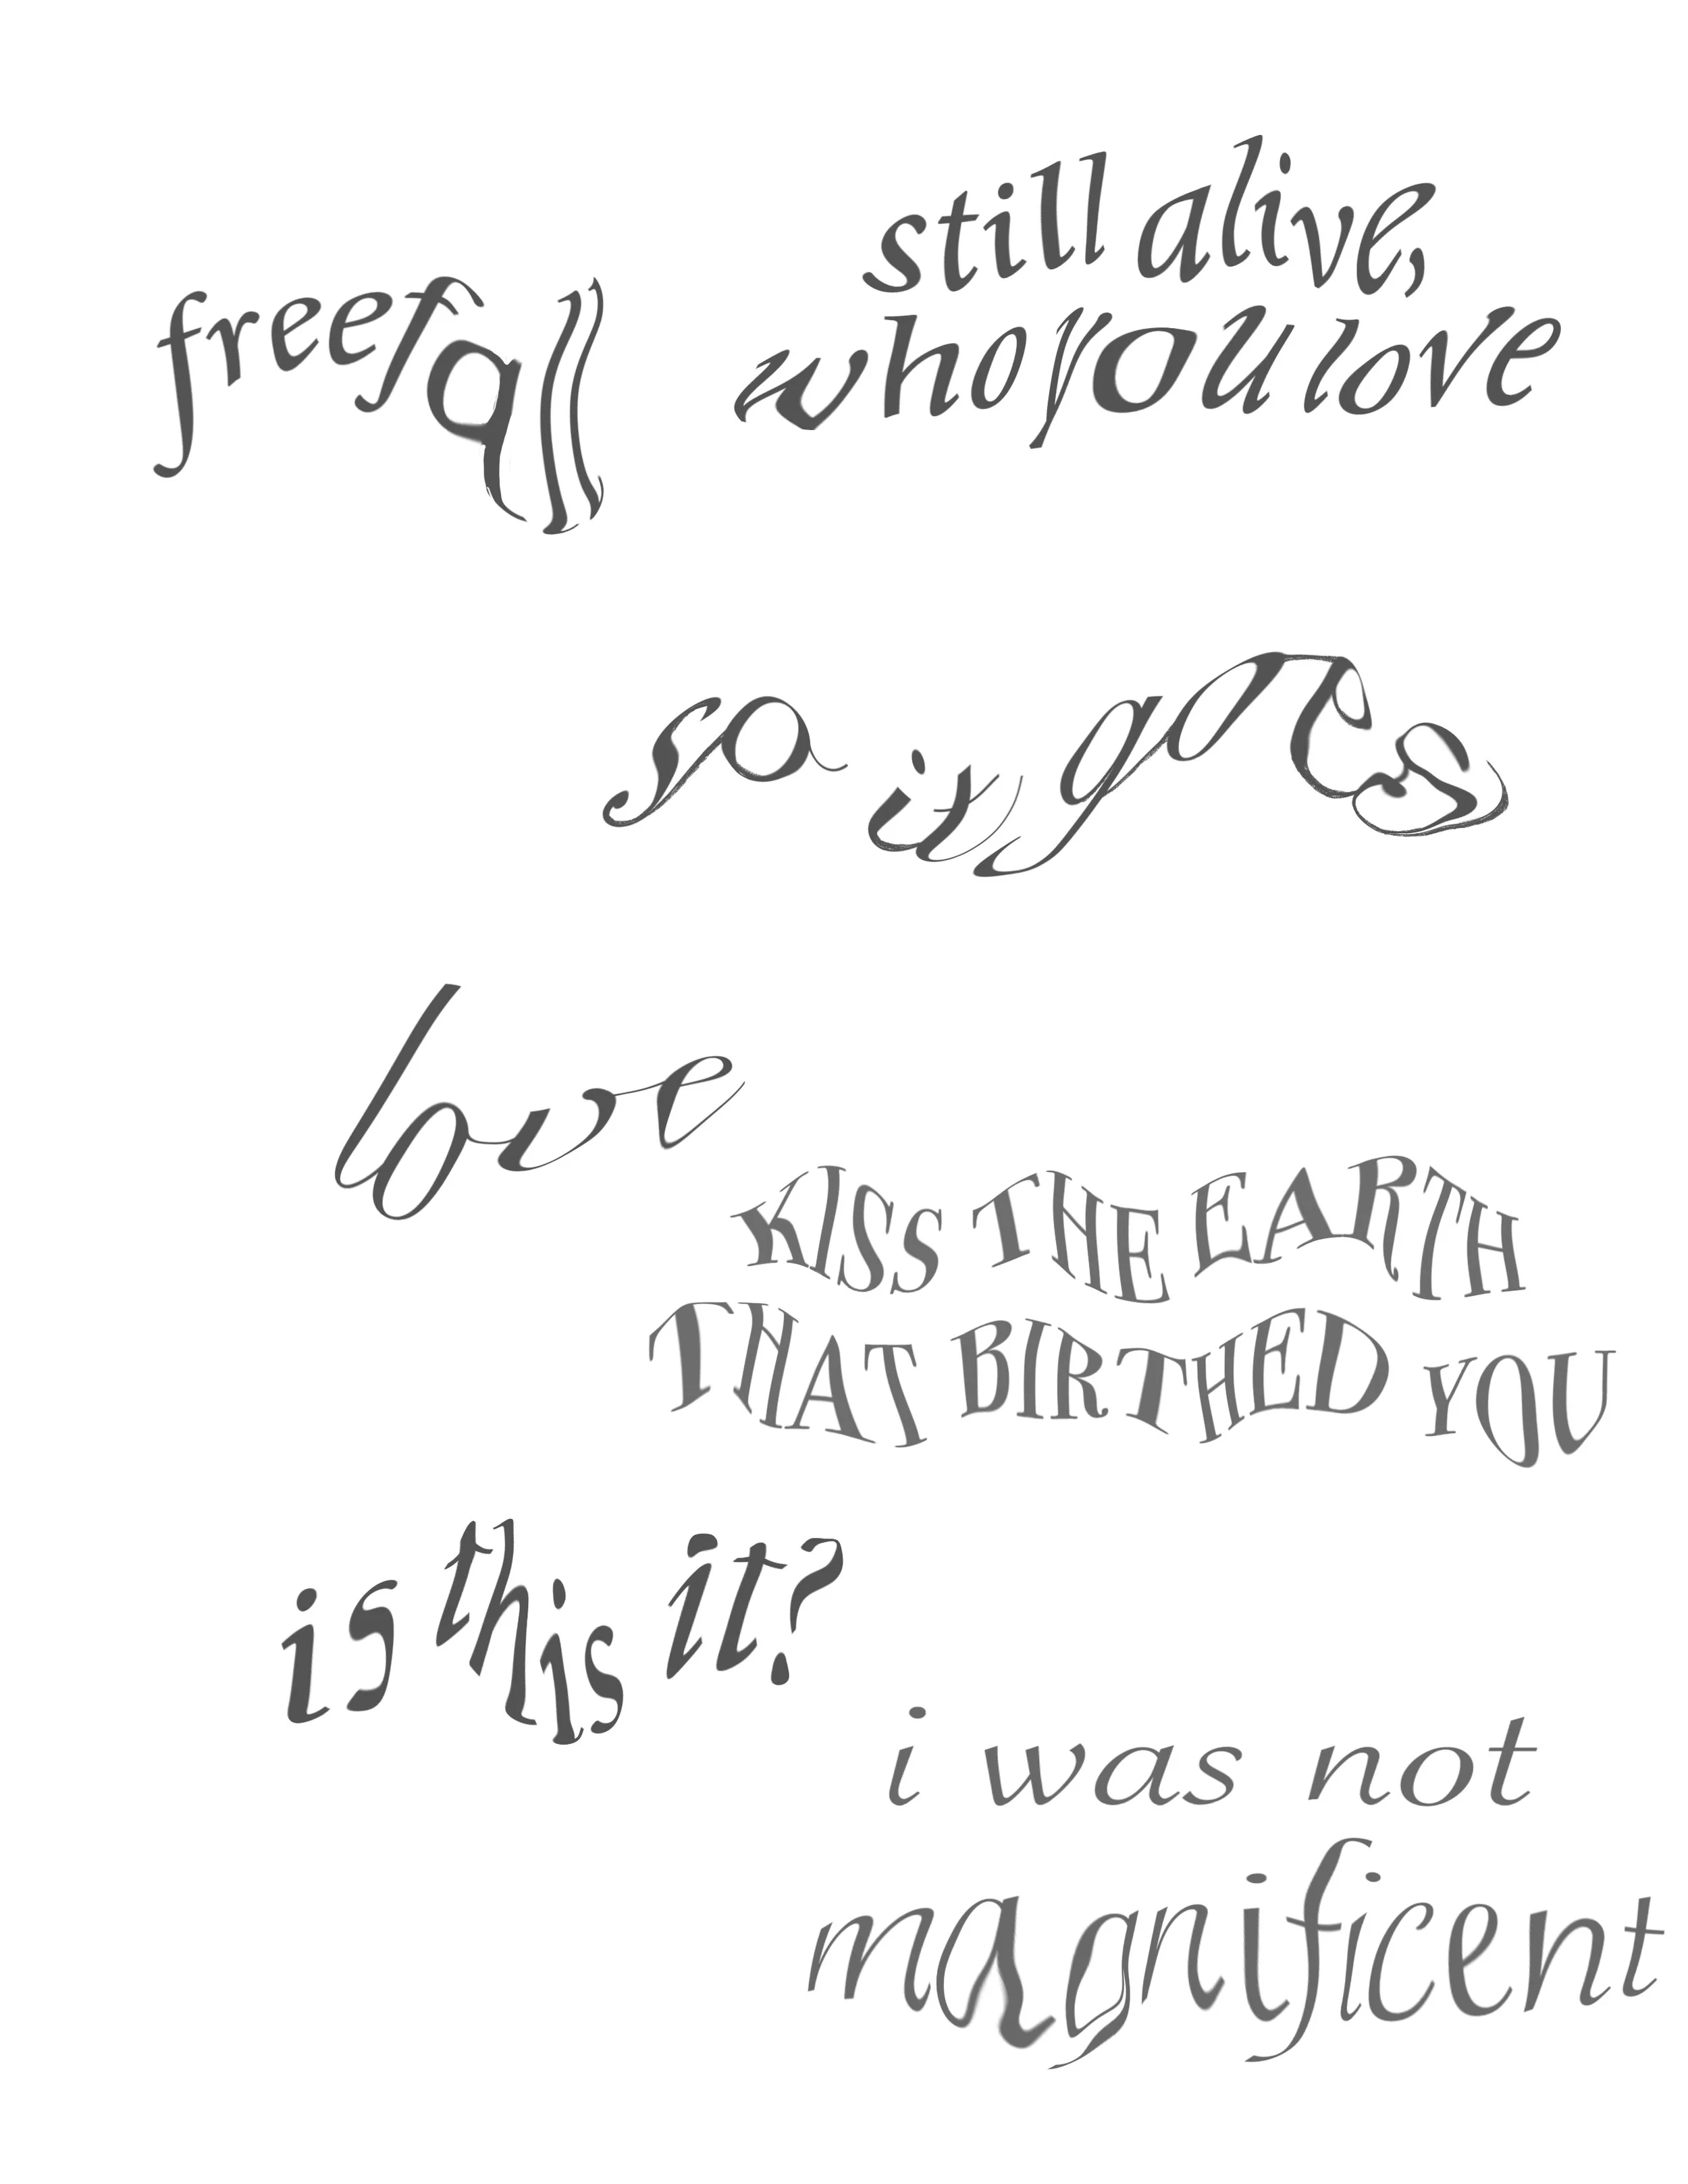 freefall
still alive,
who you love
so it goes
love
KISS THE EARTH
THAT BIRTHED YOU
is this it?
i was not
magnificent